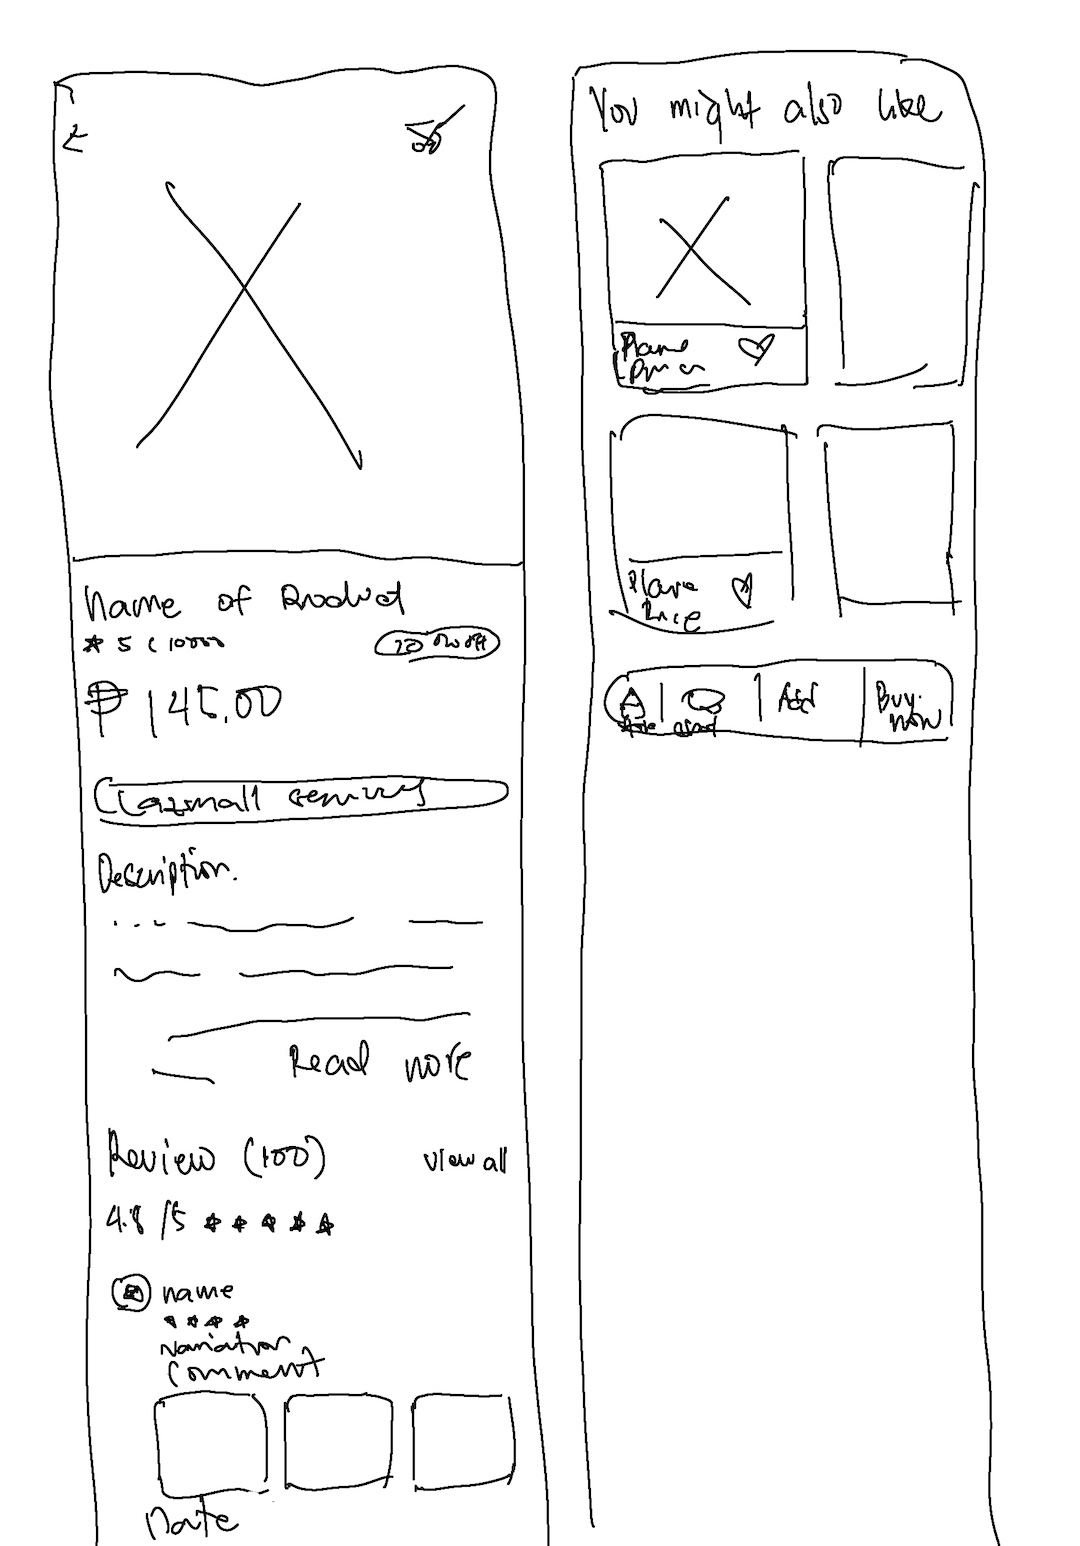 Name of Product
5 (10000
₱ 145.00
Lazmall services
Description.
Read more
Review (100) View all
4.8 /5
name
Variation
Comment
Date
You might also like
Name
Price
Add
Buy now